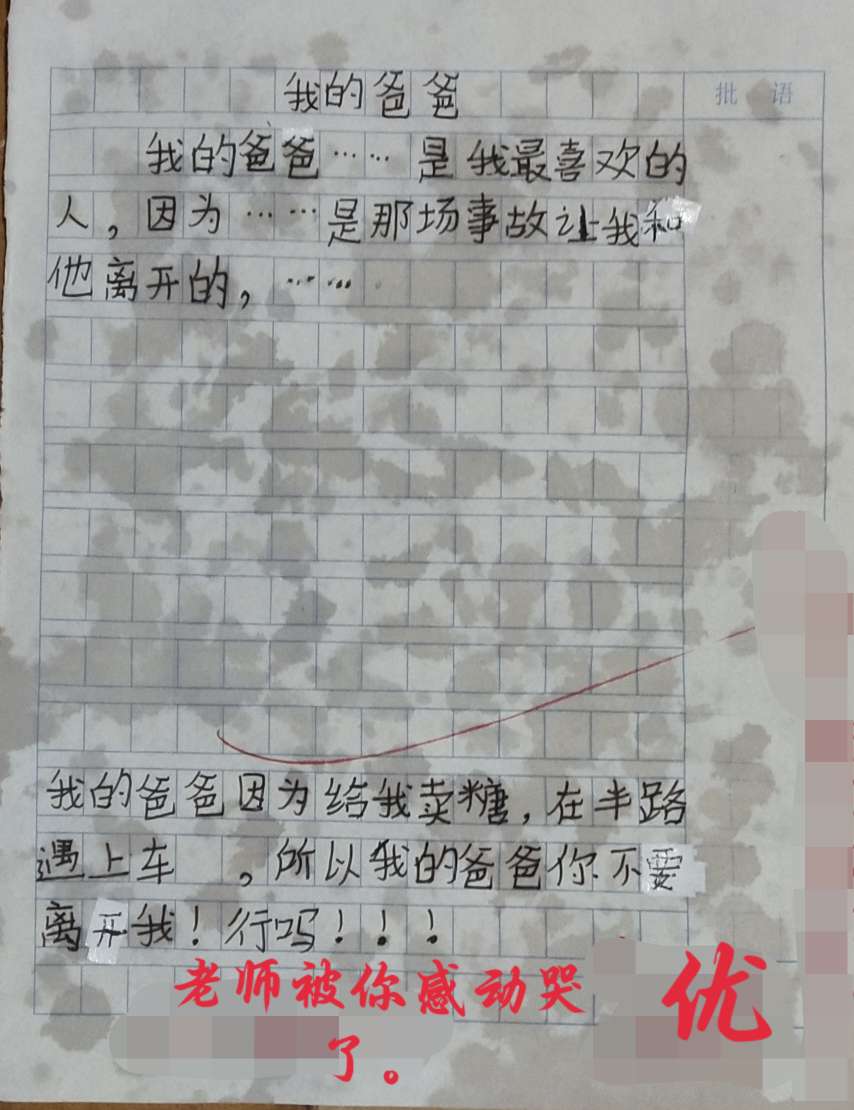 我的爸爸
批 语
我的爸爸……是我最喜欢的
人，因为……是那场事故让我和
他离开的，……
我的爸爸因为给我卖糖，在半路
遇上车 ，所以我的爸爸你不要
离开我！行吗！！！
老师被你感动哭
了。
优